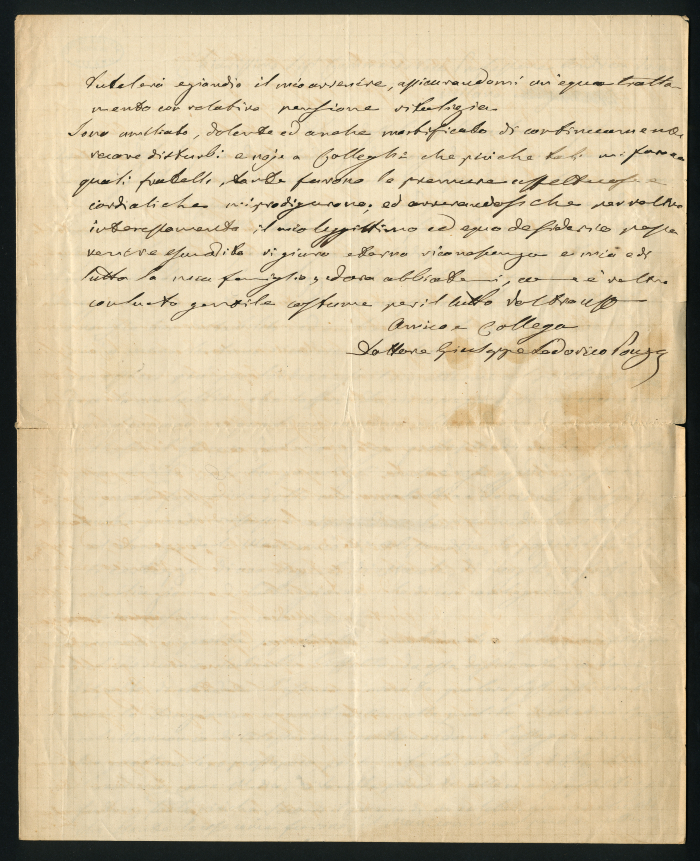 tutelerà eziandio il mio avvenire, assicurandomi un'equo tratta
mento con relativa pensione vitalizia
Sono umiliato, dolente ed anche mortificato di continuamente
recare disturbi e noje a Colleghi che più che tali mi furono
quali fratelli, tante furono le premure affettuose e
cordiali che mi prodigarono; ed avverandosi che per vostro
interessamento il mio legittimo ed equo desiderio possa
venire esaudito vi giuro eterna riconoscenza e mia e di
tutta la mia famiglia; ed ora abbiatemi, come è vostro
consueto gentile costume per il tutto vostro aff
Amico e Collega
Dottore Giuseppe Lodovico Ponza